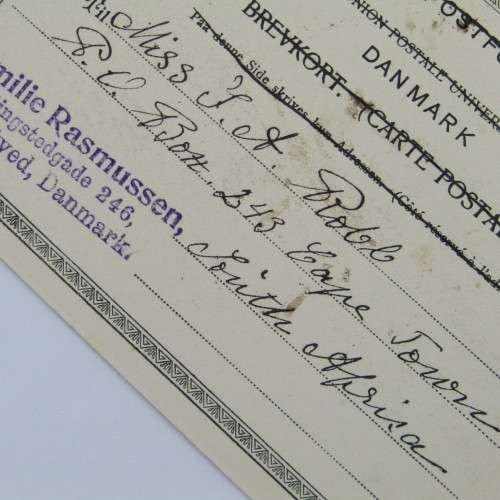 POSTFO
UNION POSTALE UNIVER
DANMARK
BREVKORT. (CARTE POSTAL
Paa denne Side skrives kun Adressen. (Côté réservé à l'ad
Til
Miss I. A. Robb
P. O. Box 243 Cape Town
South Africa
milie Rasmussen,
ingstedgade 246,
yed, Danmark.